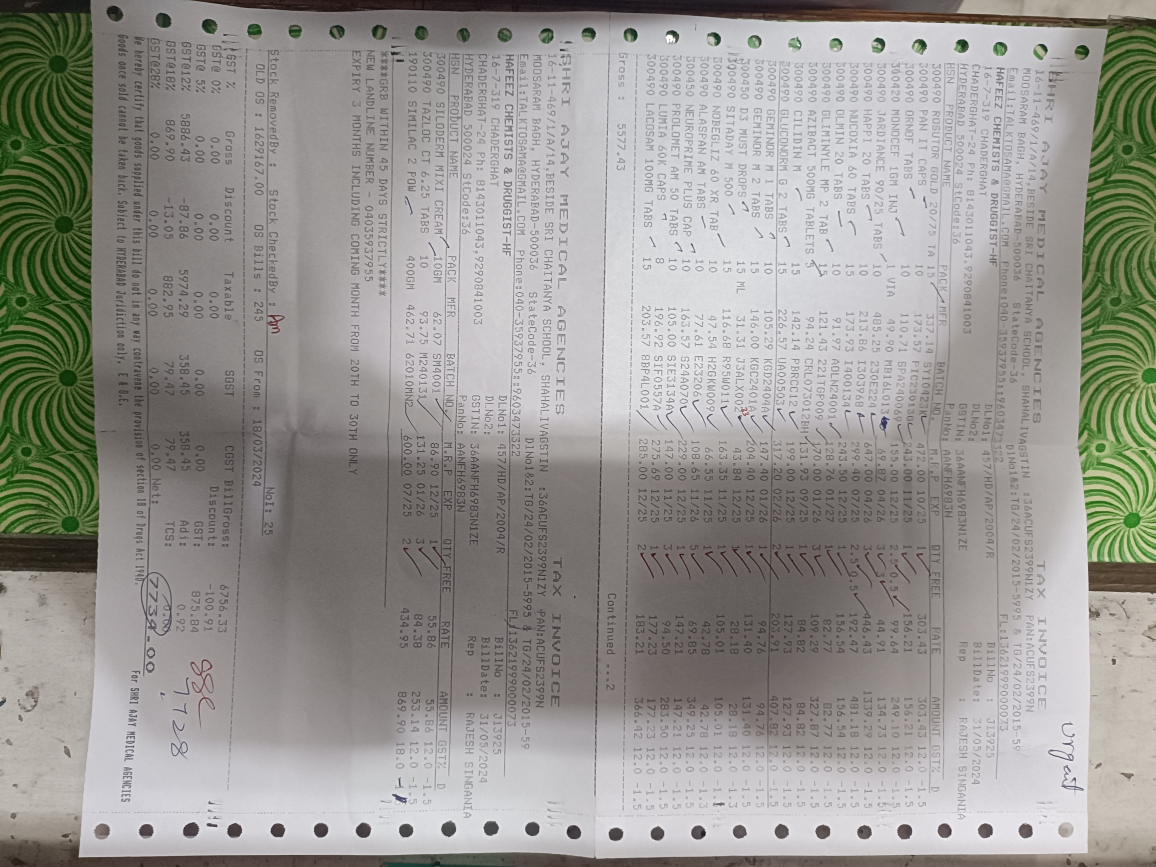 Urgent
SHRI AJAY MEDICAL AGENCIES TAX INVOICE
16-11-469/1/A/14,BESIDE SRI CHAITANYA SCHOOL, SHAHALIVAGSTIN :36ACUFS2399N1ZY PAN:ACUFS2399N
MOOSARAM BAGH, HYDERABAD-500036 StateCode-36 DlNo1&2:TG/24/02/2015-5995 & TG/24/02/2015-59
Email:TALKTOSAMA@GMAIL.COM Phone:040-35937955::9603473322 FL:13621999000073
HAFEEZ CHEMISTS & DRUGGIST-HF DLNo1: 457/HD/AP/2004/R BillNo : J13925
16-7-319 CHADERGHAT DLNo2: BillDate: 31/05/2024
CHADERGHAT-24 Ph: 8143011043,9290841003 GSTIN: 36AANFH6983N1ZE Rep : RAJESH SINGANIA
HYDERABAD 500024 StCode:36 PanNo: AANFH6983N
HSN PRODUCT NAME PACK MFR BATCH NO. M.R.P EXP QTY FREE RATE AMOUNT GST% D
300490 ROSUTOR GOLD 20/75 TA 15 337.14 472.00 10/25 1 303.43 303.43 12.0 -1.5
300490 PAN IT CAPS 10 173.57 243.00 11/25 1 156.21 156.21 12.0 -1.5
300490 ORNOF TABS 10 110.71 155.00 12/25 2.5 0.5 99.64 249.10 12.0 -1.5
300420 MONOCEF 1GM INJ 1 VIA 49.90 44.91 12.0
300490 JARDIANCE 90/25 TABS 10 485.25 23OE24 04/26 3 446.43 1339.29 12.0 -1.5
300490 HAPPI 20 TABS 15 213.86 I303968 299.40 07/25 2.5 0.5 192.47 481.18 12.0 -1.5
300490 NUCOXIA 60 TABS 10 173.93 I400134 243.50 12/25 1 156.54 156.54 12.0 -1.5
300490 OLMIN 20 TABS 10 91.97 AOLN24001 128.76 01/27 1 82.77 82.77 12.0 -1.5
300490 GLIMINYLE MP 2 TAB 15 121.43 221TGP009 170.00 01/26 3 109.29 327.87 12.0 -1.5
300490 AZIBACT 500MG TABLETS 5 94.24 CRL073012BH 131.93 09/25 1 84.82 84.82 12.0 -1.5
300490 CILIDIN M 15 142.14 PBRCC12 199.00 01/26 1 127.93 127.93 12.0 -1.5
300490 GLUCONORM G 2 TABS 15 226.57 UA00503 317.20 02/25 2 203.91 407.82 12.0 -1.5
300490 GEMINOR M 1 TABS 10 105.29 KGD2404A 147.40 01/26 1 94.76 94.76 12.0 -1.5
300490 GEMINOR M 2 TABS 15 146.00 KGC2401A 204.40 01/26 1 131.40 131.40 12.0 -1.5
300450 D3 MUST DROPS 15 ML 31.31 J3ALX002 43.84 12/25 1 28.18 28.18 12.0 -1.3
300490 SITADAY M 500 15 116.68 R95W011 163.35 11/25 1 105.01 105.01 12.0
300490 NOBEGLIZ 60 XR TAB 10 47.54 H2OKW009 66.55 11/25 1 42.78 42.78 12.0 -1.3
300490 ALASPAN AM TABS 10 77.61 E23206 108.65 11/26 5 69.85 349.25 12.0 -1.5
300450 NEUROPRIME PLUS CAP 10 163.57 S24A070 229.00 12/25 1 147.21 147.21 12.0 -1.5
300490 PROLOMET AM 50 TABS 10 105.00 SIE3134A 147.00 11/25 3 94.50 283.50 12.0 -1.5
300490 LUMIA 60K CAPS 8 196.92 SIF0557A 275.69 12/25 1 177.23 177.23 12.0 -1.5
300490 LACOSAM 100MG TABS 15 203.57 BBP4L001 285.00 12/25 2 183.21 366.42 12.0 -1.5
Gross : 5577.43 Continued ...2
SHRI AJAY MEDICAL AGENCIES TAX INVOICE
16-11-469/1/A/14,BESIDE SRI CHAITANYA SCHOOL, SHAHALIVAGSTIN :36ACUFS2399N1ZY PAN:ACUFS2399N
MOOSARAM BAGH, HYDERABAD-500036 StateCode-36 DlNo1&2:TG/24/02/2015-5995 & TG/24/02/2015-59
Email:TALKTOSAMA@GMAIL.COM Phone:040-35937955::9603473322 FL:13621999000073
HAFEEZ CHEMISTS & DRUGGIST-HF DLNo1: 457/HD/AP/2004/R BillNo : J13925
16-7-319 CHADERGHAT DLNo2: BillDate: 31/05/2024
CHADERGHAT-24 Ph: 8143011043,9290841003 GSTIN: 36AANFH6983N1ZE Rep : RAJESH SINGANIA
HYDERABAD 500024 StCode:36 PanNo: AANFH6983N
HSN PRODUCT NAME PACK MFR BATCH NO. M.R.P EXP QTY FREE RATE AMOUNT GST% D
300490 SILODERM MIXI CREAM 10GM 62.07 SM4003 86.90 12/25 1 55.86 55.86 12.0 -1.5
300490 TAZLOC CT 6.25 TABS 10 93.75 M240131 131.25 01/26 3 84.38 253.14 12.0 -1.5
190110 SIMILAC 2 POW 400GM 462.71 62010MN2 600.00 07/25 2 434.95 869.90 18.0 -1.5
****GRB WITHIN 45 DAYS STRICTLY****
NEW LANDLINE NUMBER - 04035937955
EXPIRY 3 MONTHS INCLUDING COMING MONTH FROM 20TH TO 30TH ONLY
Stock RemovedBy : Stock CheckedBy : NoI: 25
OLD OS : 1629167.00 OS Bills : 245 OS From : 18/03/2024
GST % Gross Discount Taxable SGST CGST BillGross: 6756.33
GST@ 0% 0.00 0.00 0.00 0.00 0.00 Discount: -100.91
GST@ 5% 0.00 0.00 0.00 0.00 0.00 GST: 875.84
GST@12% 5886.43 -87.86 5974.29 358.45 358.45 Adj: 0.92
GST@18% 869.90 -13.05 882.95 79.47 79.47 TCS: 0.00
GST@28% 0.00 0.00 0.00 0.00 0.00 Net: 7734.00
We hereby certify that goods supplied under this bill do not in any way contravene the provision of section 18 of Drugs Act 1940.
Goods once sold cannot be taken back. Subject to HYDERABAD Juridiction only. E & O.E.
For SHRI AJAY MEDICAL AGENCIES
7728